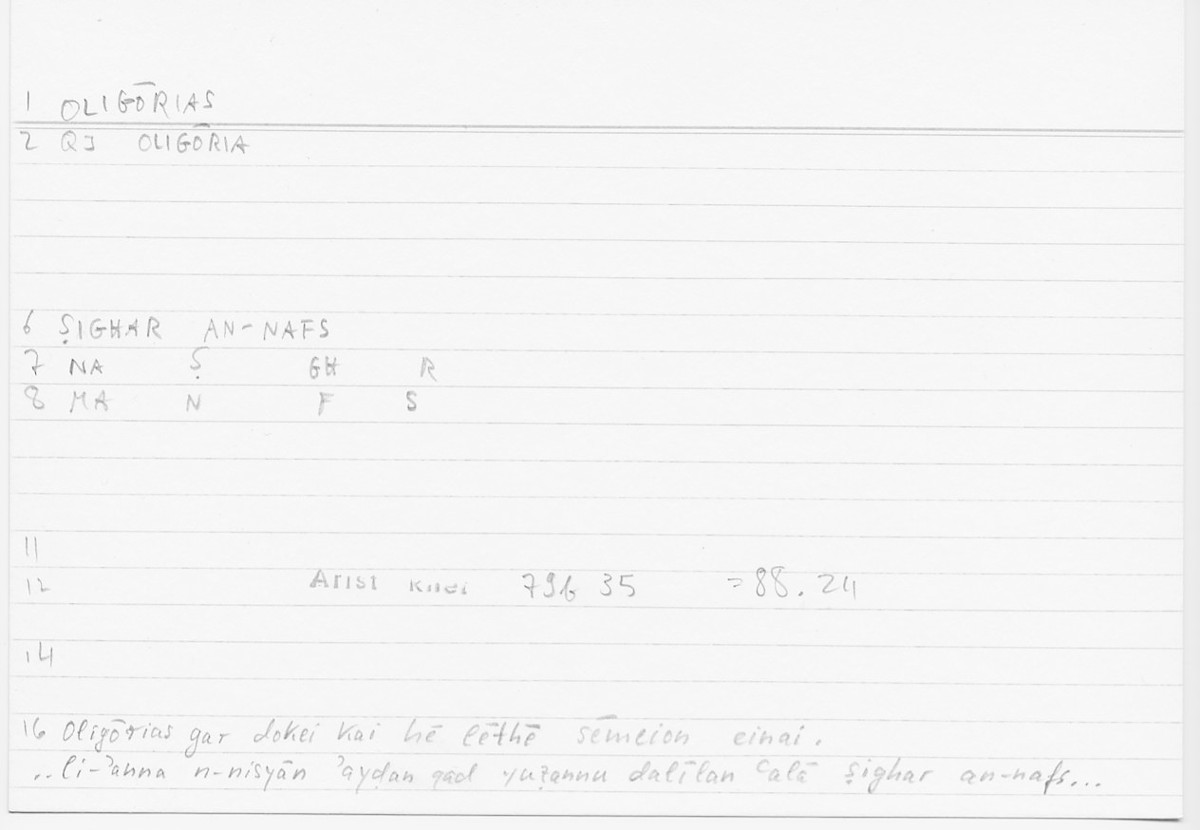 1 OLIGŌRIAS
2 QI OLIGŌRIA
6 ṢIGHAR AN-NAFS
7 NA Ṣ GH R
8 MA N F S
11
12 Arist 79b 35 =88.24
14
16 Oligōrias gar dokei kai hē lēthē sēmeion einai.
..li-ʾanna n-nisyān ʾayḍan qad yuẓannu dalīlan ʿalā ṣighar an-nafs...